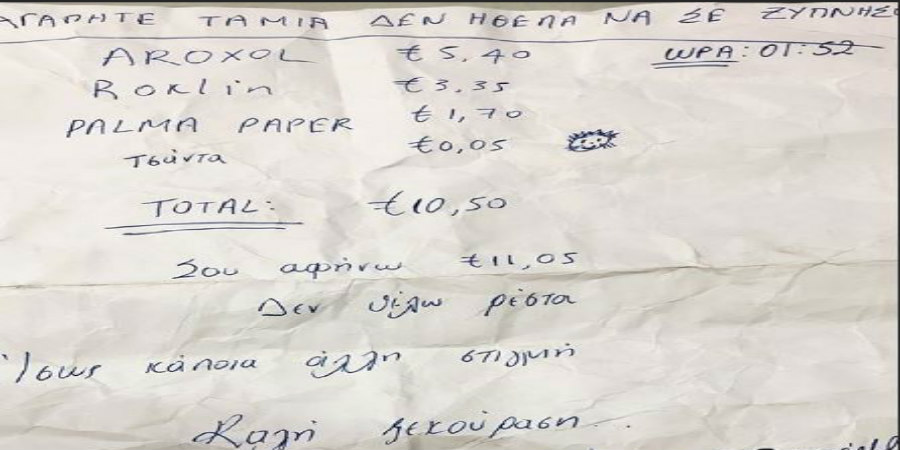 ΑΓΑΠΗΤΕ ΤΑΜΙΑ ΔΕΝ ΗΘΕΛΑ ΝΑ ΣΕ ΞΥΠΝΗΣΩ
AROXOL € 5,40 ΩΡΑ: 01:52
Roklin €3.35
PALMA PAPER € 1,70
Τσάντα €0,05
TOTAL: €10,50
Σου αφήνω €11,05
Δεν θέλω ρέστα
Ίσως κάποια άλλη στιγμή
Καλή ξεκούραση...